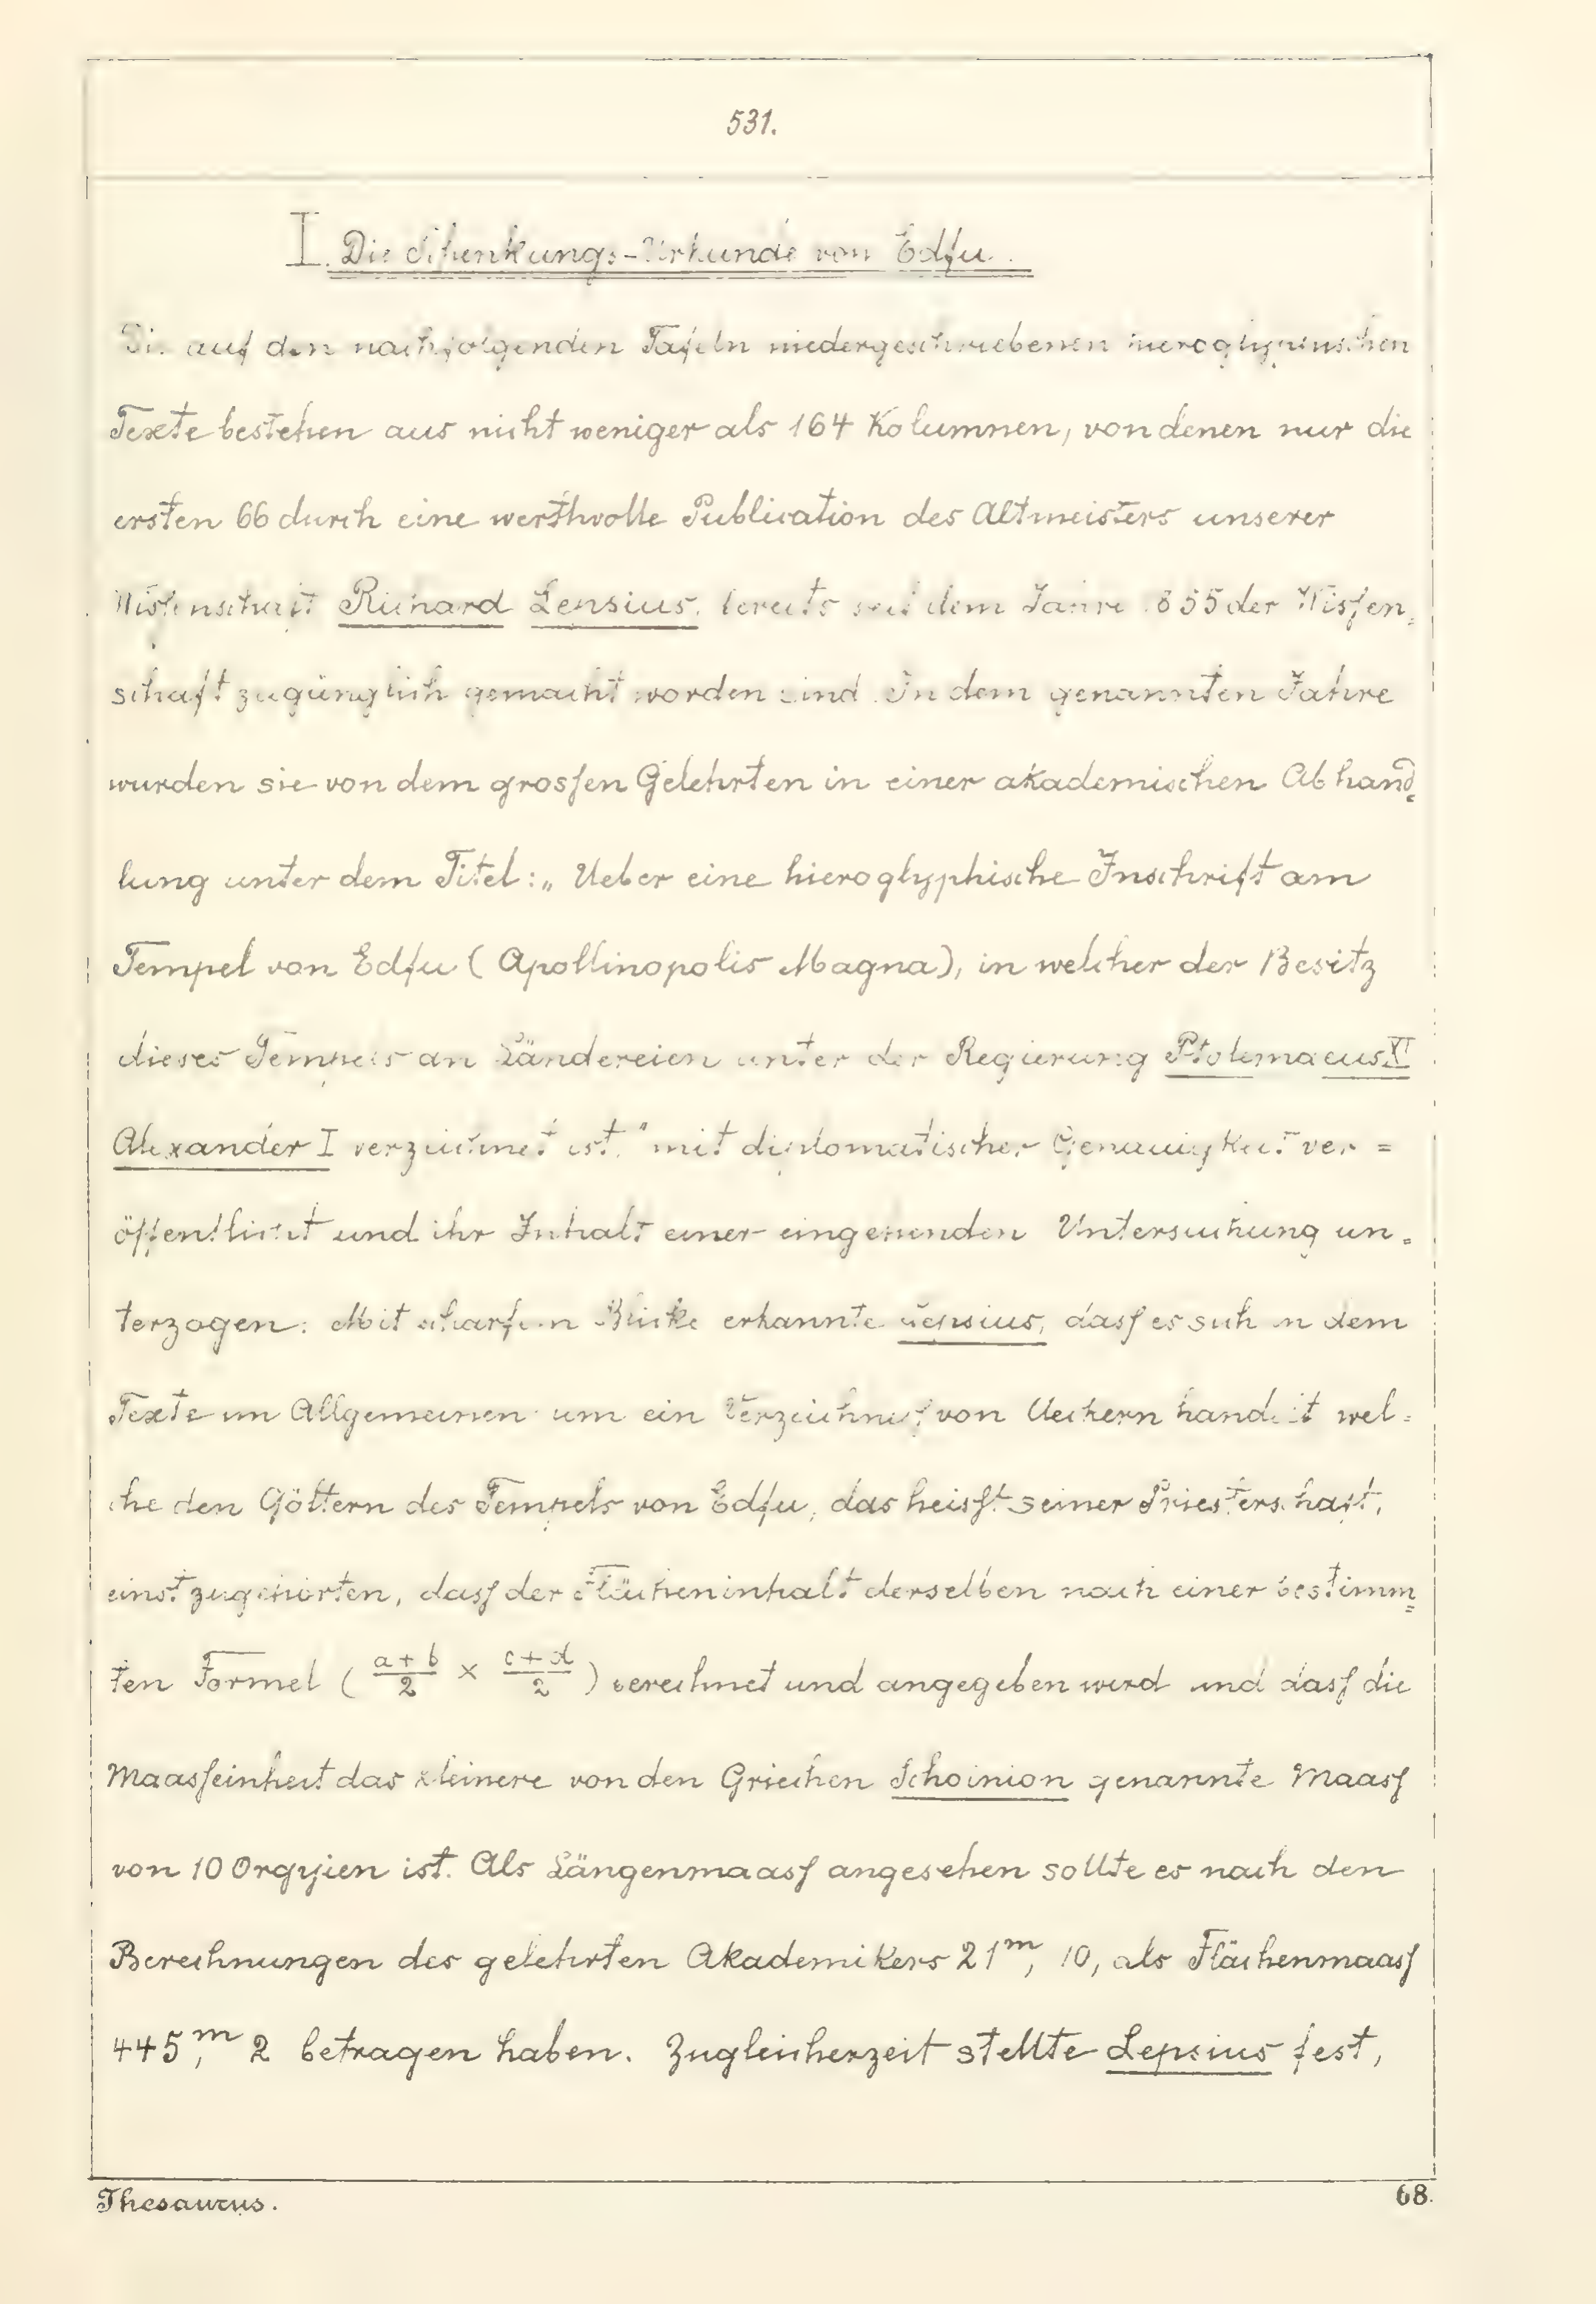 531.
I. Die Schenkungs-Urkunde von Edfu.
Die auf den nachfolgenden Tafeln niedergeschriebenen hieroglyphischen
Texte bestehen aus nicht weniger als 164 Kolumnen, von denen nur die
ersten 66 durch eine werthvolle Publication des Altmeisters unserer
Wissenschaft Richard Lepsius, bereits seit dem Jahre 1855 der Wissen=
schaft zugänglich gemacht worden sind. In dem genannten Jahre
wurden sie von dem grossen Gelehrten in einer akademischen Abhand=
lung unter dem Titel: „Ueber eine hieroglyphische Inschrift am
Tempel von Edfu (Apollinopolis Magna), in welcher der Besitz
dieses Tempels an Ländereien unter der Regierung Ptolemaeus XI
Alexander I verzeichnet ist." mit diplomatischer Genauigkeit ver=
öffentlicht und ihr Inhalt einer eingehenden Untersuchung un=
terzogen: Mit scharfem Blicke erkannte Lepsius, dass es sich in dem
Texte im Allgemeinen um ein Verzeichniss von Aeckern handelt wel=
che den Göttern des Tempels von Edfu, das heisst seiner Priesterschaft,
einst zugehörten, dass der Flächeninhalt derselben nach einer bestimm=
ten Formel ( a+b/2 × c+d/2 ) berechnet und angegeben wird und dass die
Maasseinheit das kleinere von den Griechen Schoinion genannte Maass
von 10 Orgyien ist. Als Längenmaass angesehen sollte es nach den
Berechnungen des gelehrten Akademikers 21ᵐ, 10, als Flächenmaass
445,ᵐ 2 betragen haben. Zugleicherzeit stellte Lepsius fest,
Thesaurus.
68.